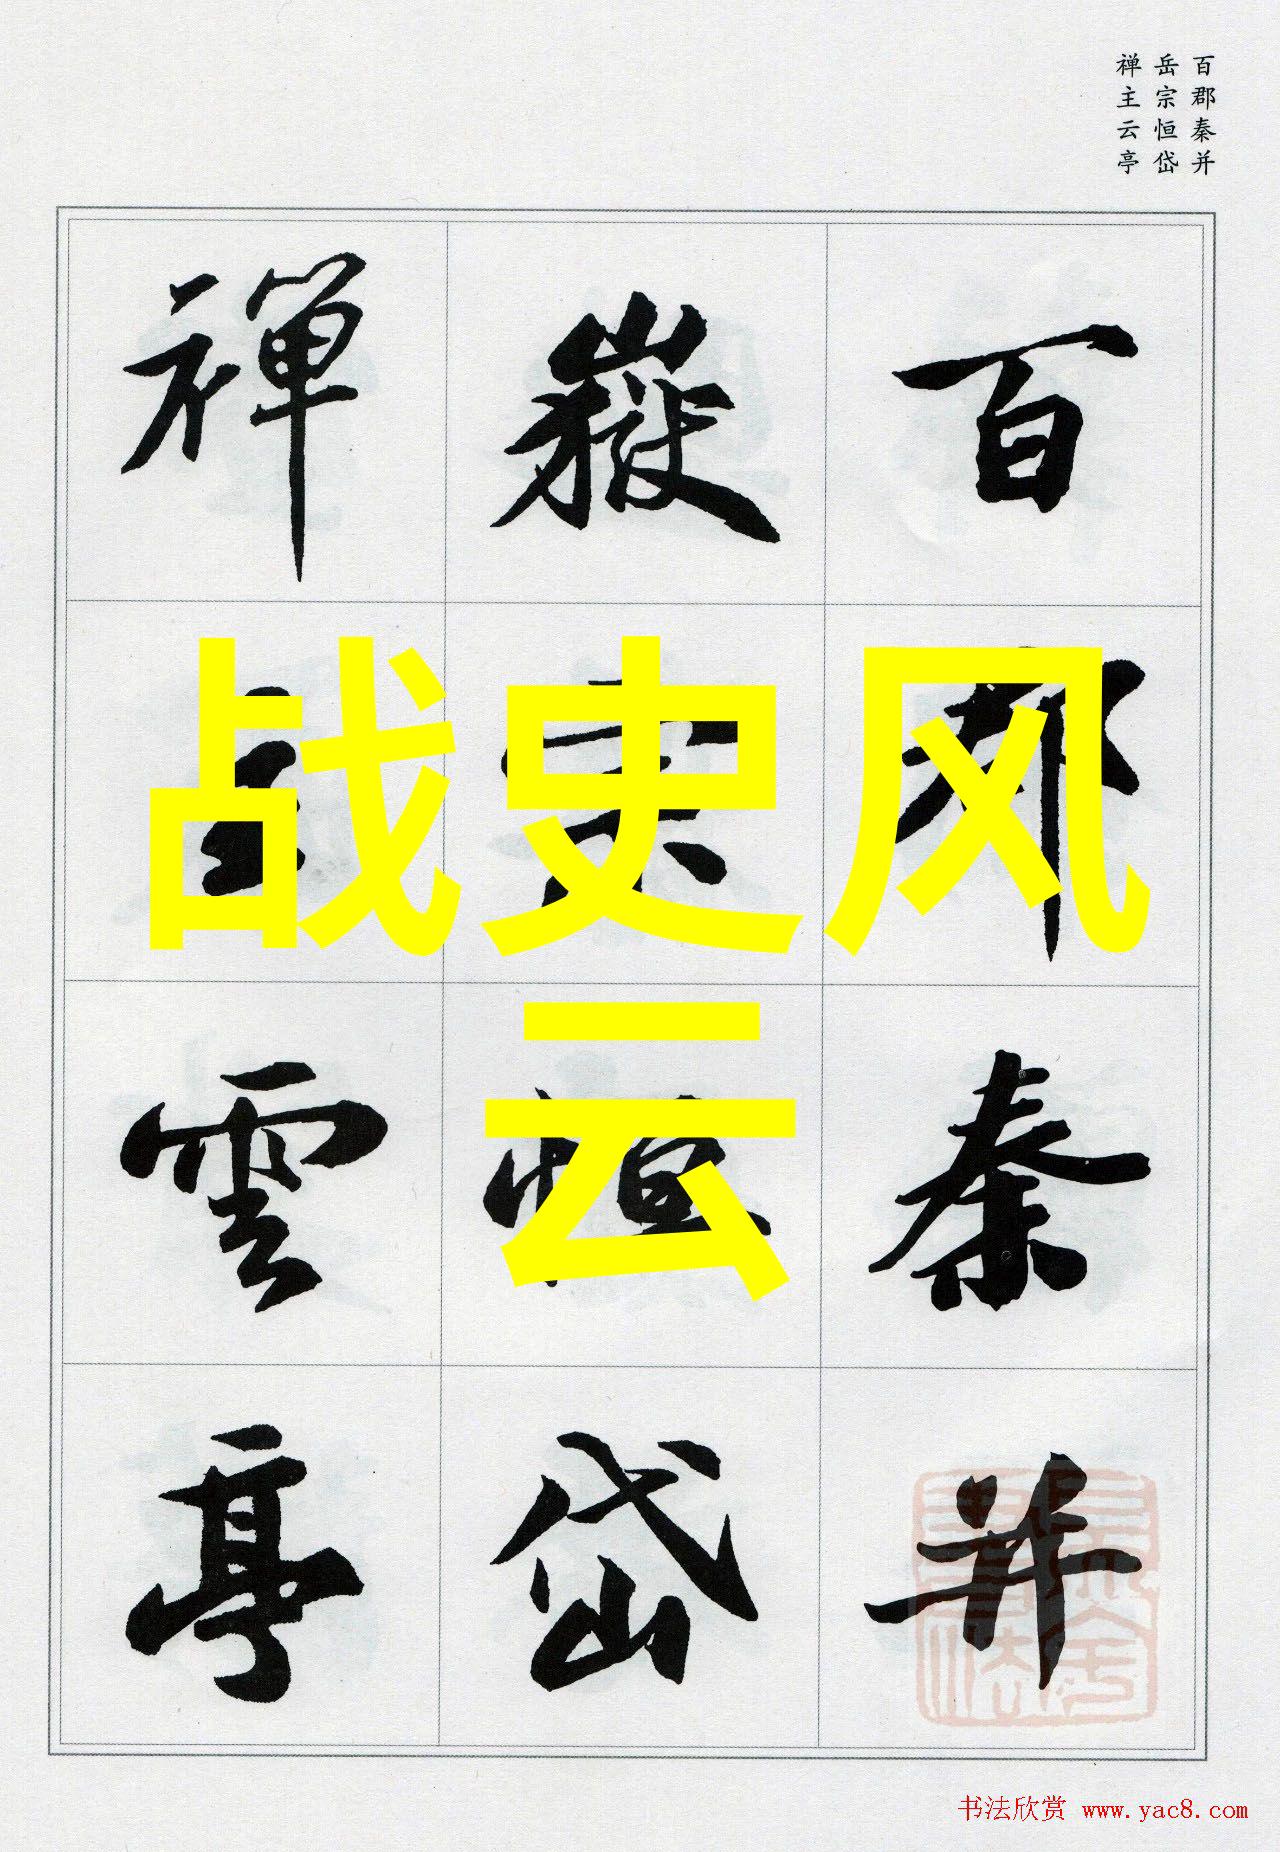 百郡秦并
岳宗恒岱
禅主云亭
百郡秦并
嶽宗恒岱
禅主雲亭
战史风
云
书法欣赏 www.yac8.com